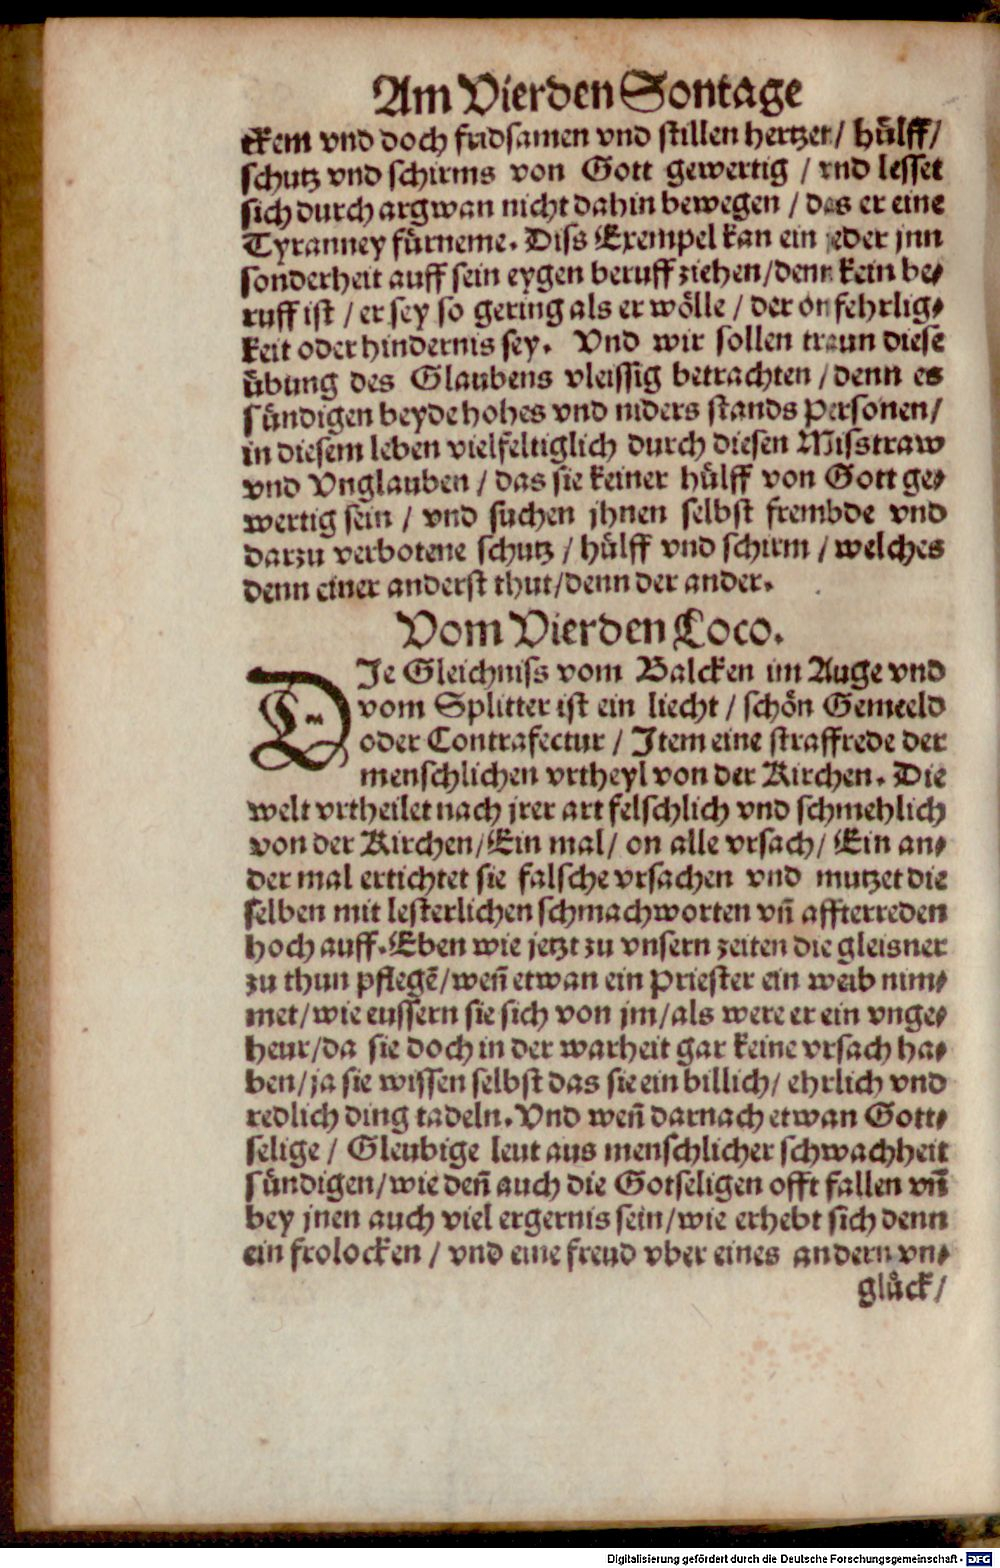 Am Vierden Sontage
ckem vnd doch fridsamen vnd stillen hertzen / hülff /
schutz vnd schirms von Gott gewertig / vnd lesset
sich durch argwan nicht dahin bewegen / das er eine
Tyranney fürneme. Diss Exempel kan ein jeder jnn
sonderheit auff sein eygen beruff ziehen / denn kein be⸗
ruff ist / er sey so gering als er wölle / der on fehrlig⸗
keit oder hindernis sey. Vnd wir sollen traun diese
übung des Glaubens vleissig betrachten / denn es
sündigen beyde hohes vnd niders stands Personen /
in diesem leben vielfeltiglich durch diesen Misstraw
vnd Vnglauben / das sie keiner hülff von Gott ge⸗
wertig sein / vnd suchen jhnen selbst frembde vnd
darzu verbotene schutz / hülff vnd schirm / welches
denn einer anderst thut / denn der ander.
Vom Vierden Loco.
DJe Gleichniss vom Balcken im Auge vnd
vom Splitter ist ein liecht / schön Gemeeld
oder Contrafectur / Jtem eine straffrede der
menschlichen vrtheyl von der Kirchen. Die
welt vrtheilet nach jrer art felschlich vnd schmehlich
von der Kirchen / Ein mal / on alle vrsach / Ein an⸗
der mal ertichtet sie falsche vrsachen vnd mutzet die
selben mit lesterlichen schmachworten vn̄ affterreden
hoch auff. Eben wie jetzt zu vnsern zeiten die gleisner
zu thun pflegē / wen̄ etwan ein Priester ein weib nim⸗
met / wie eussern sie sich von jm / als were er ein vnge⸗
heur / da sie doch in der warheit gar keine vrsach ha⸗
ben / ja sie wissen selbst das sie ein billich / ehrlich vnd
redlich ding tadeln. Vnd wen̄ darnach etwan Gott⸗
selige / Gleubige leut aus menschlicher schwachheit
sündigen / wie den̄ auch die Gotseligen offt fallen vn̄
bey jnen auch viel ergernis sein / wie erhebt sich denn
ein frolocken / vnd eine freud vber eines andern vn⸗
glück /
Digitalisierung gefördert durch die Deutsche Forschungsgemeinschaft - DFG